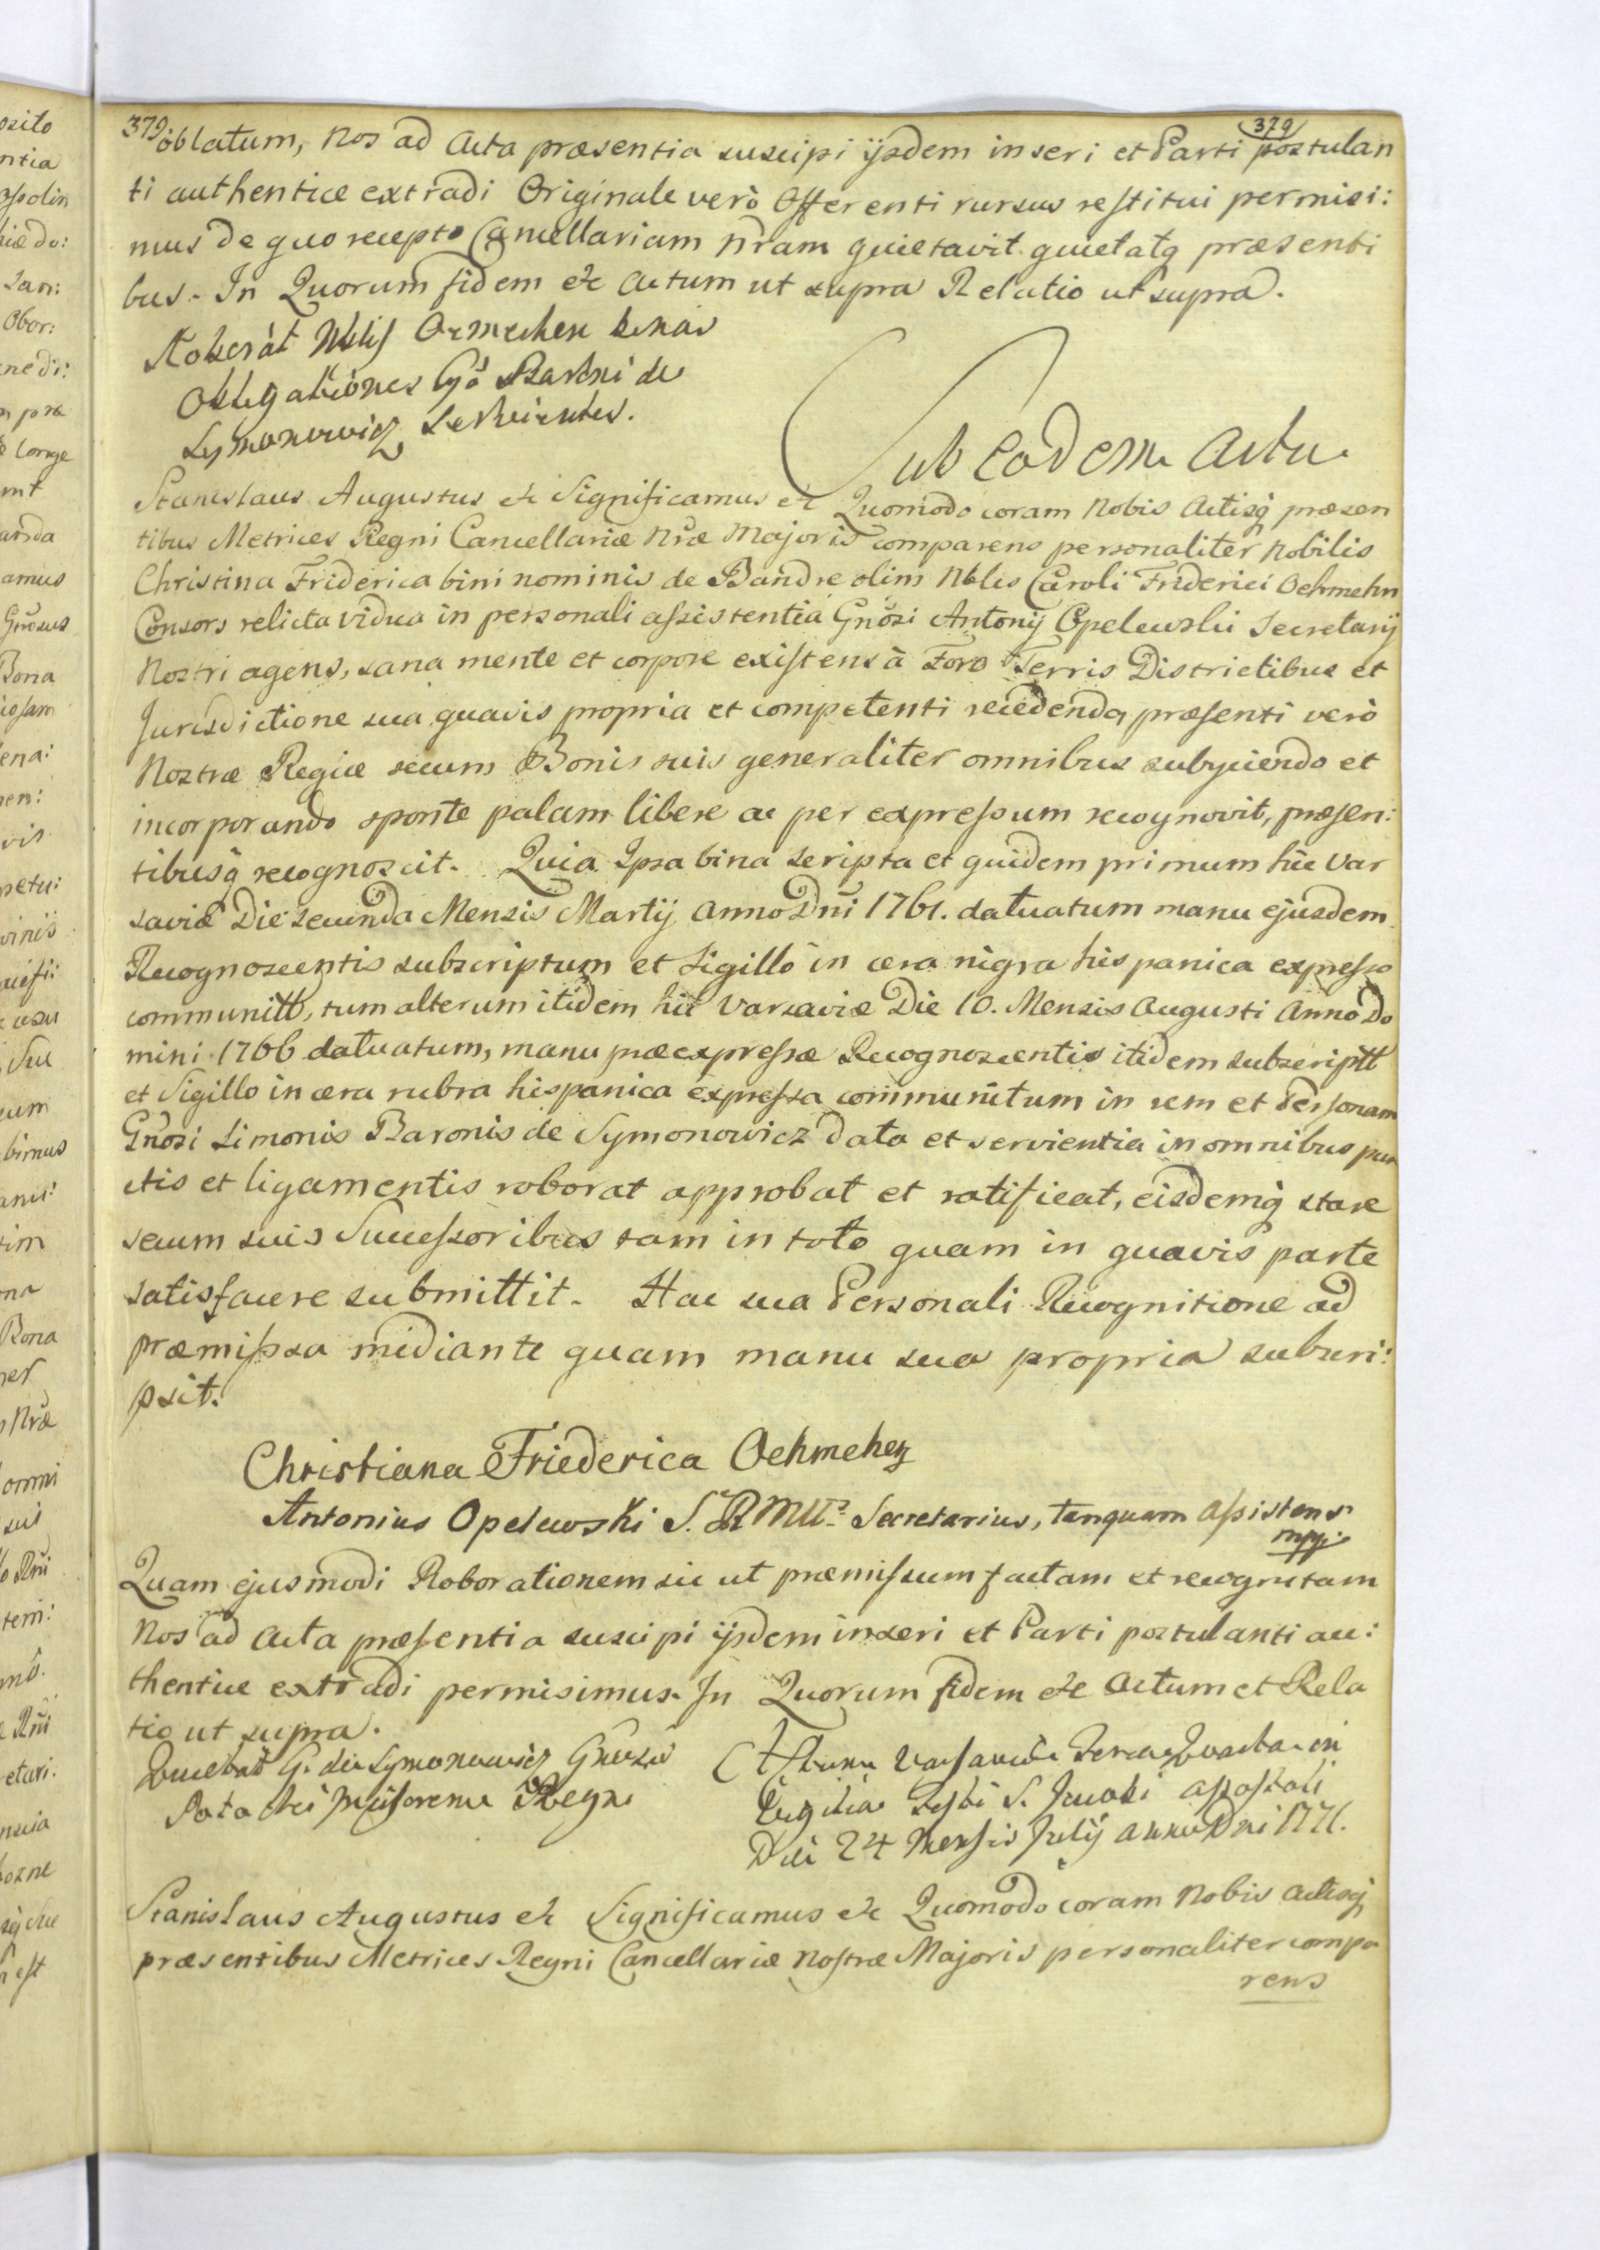 379
379
oblatum, Nos ad Acta præsentia suscipi ijsdem inseri et Parti postulan
ti authentice extradi Originale verò Offerenti rursus restitui permisi:
mus de quo recepto Cancellariam Nram quietavit quietatq præsenti
bus. In Quorum fidem &c Actum ut supra Relatio ut supra.
Roborat Nblis Oemehen binas
Obligationes Gso Baroni de
Symonowicz Servientes.
Sub Eodem Actu.
Stanislaus Augustus &c Significamus &c Quomodo coram Nobis Actisq præsen
tibus Metrices Regni Cancellariæ Nræ Majoris comparens personaliter Nobilis
Christina Friderica bini nominis de Bandre olim Nblis Caroli Friderici Oehmehn
Consors relicta vidua in personali assistentia Gnosi Antonij Opelewski Secretarij
Nostri agens, sana mente et corpore existens à Foro Terris Districtibus et
Jurisdictione sua quavis propria et competenti recedendo, præsenti verò
Nostræ Regiæ secum Bonis suis generaliter omnibus subijciendo et
incorporando sponte palam libere ac per expressum recognovit, præsen:
tibusq recognoscit. Quia Ipsa bina scripta et quidem primum hic Var
saviæ Die secunda Mensis Martij Anno Dni 1761. datuatum manu ejusdem
Recognoscentis subscriptum et Sigillo in cera nigra hispanica expresso
communitt, tum alterum itidem hic Varsaviæ Die 10. Mensis Augusti Anno Do
mini 1766 datuatum, manu præexpressæ Recognoscentis itidem subscriptt
et Sigillo in cera rubra hispanica expressa communitum in rem et Personam
Gnosi Simonis Baronis de Symonowicz data et servientia in omnibus pun
ctis et ligamentis roborat approbat et ratificat, eisdemq stare
secum suis Successoribus tam in toto quam in quavis parte
satisfacere submittit. Hac sua Personali Recognitione ad
præmissa mediante quam manu sua propria subscri:
psit.
Christiana Friederica Oehmehen
Antonius Opelewski S. R M Secretarius, tanquam Assistens
mpp.
Quam ejusmodi Roborationem sic ut præmissum factam et recognitam
Nos ad Acta præsentia suscipi ijsdem inseri et Parti postulanti au:
thentice extradi permisimus. In Quorum fidem &c Actum et Rela
tio ut supra.
G. de Symonowicz Gnosum
Regni
Actum Varsaviæ Feria Quarta in
Vigilia Festi S. Jacobi Apostoli
Die 24 Mensis Julij Anno Dni 1771.
Stanislaus Augustus &c Significamus &c Quomodo coram Nobis Actisq
præsentibus Metrices Regni Cancellariæ Nostræ Majoris personaliter compa
rens